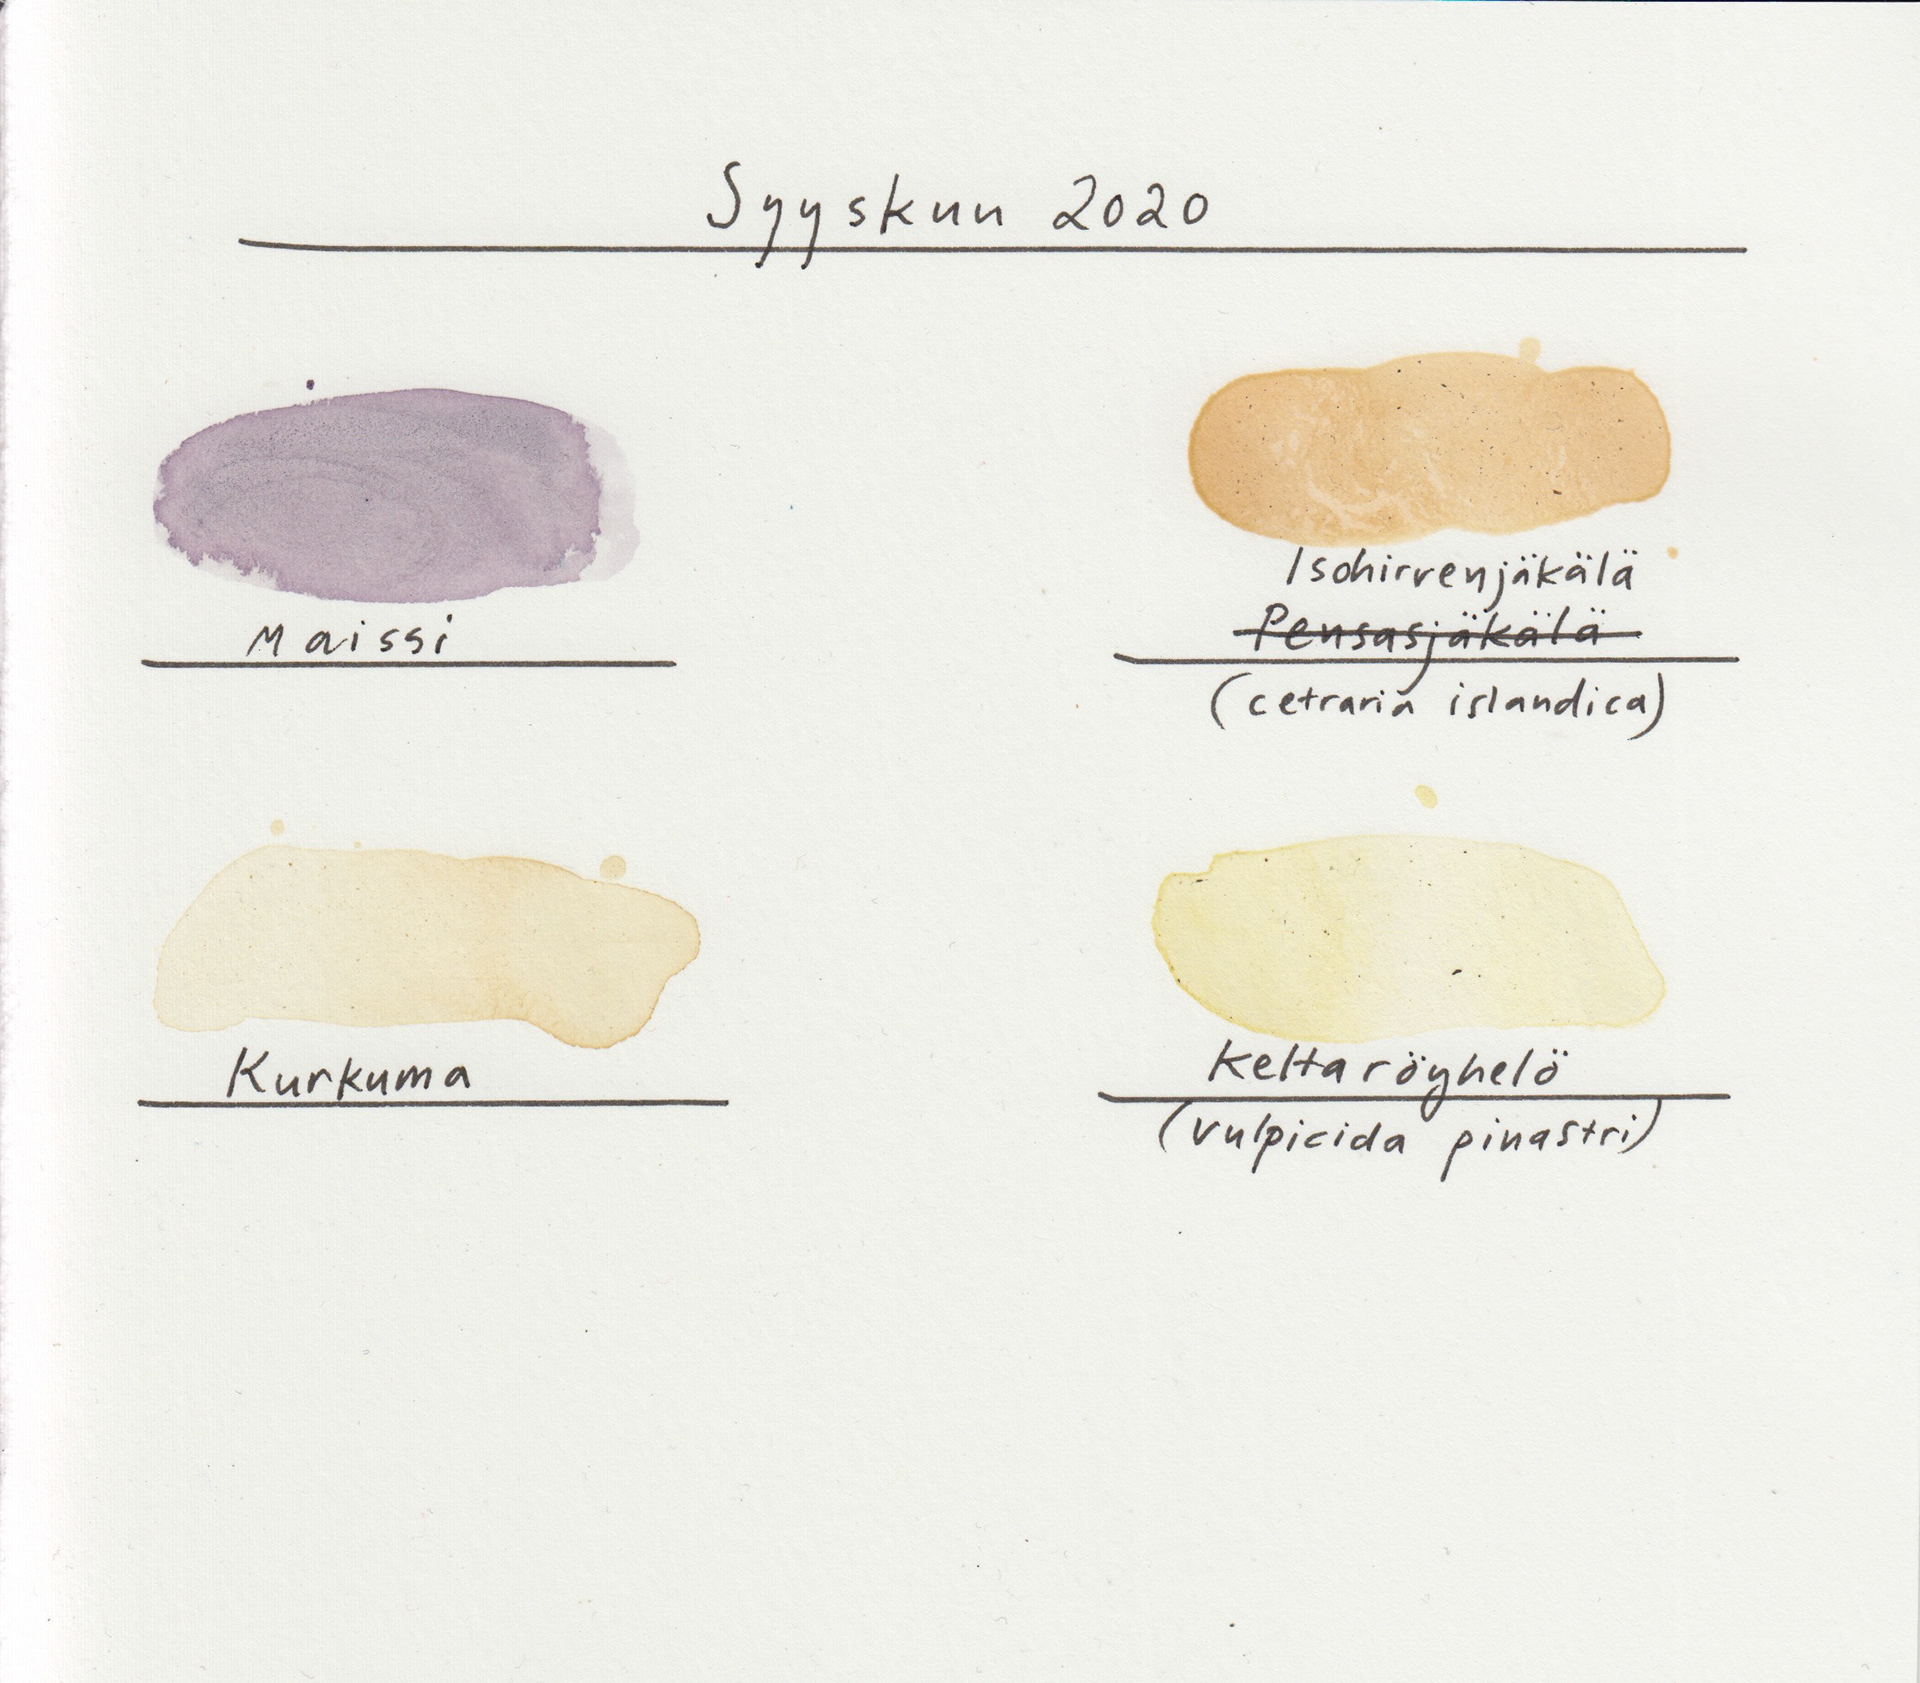 Syyskuu 2020
Maissi
Isohirvenjäkälä
Pensasjäkälä
(cetraria islandica)
Kurkuma
Keltaröyhelö
(vulpicida pinastri)